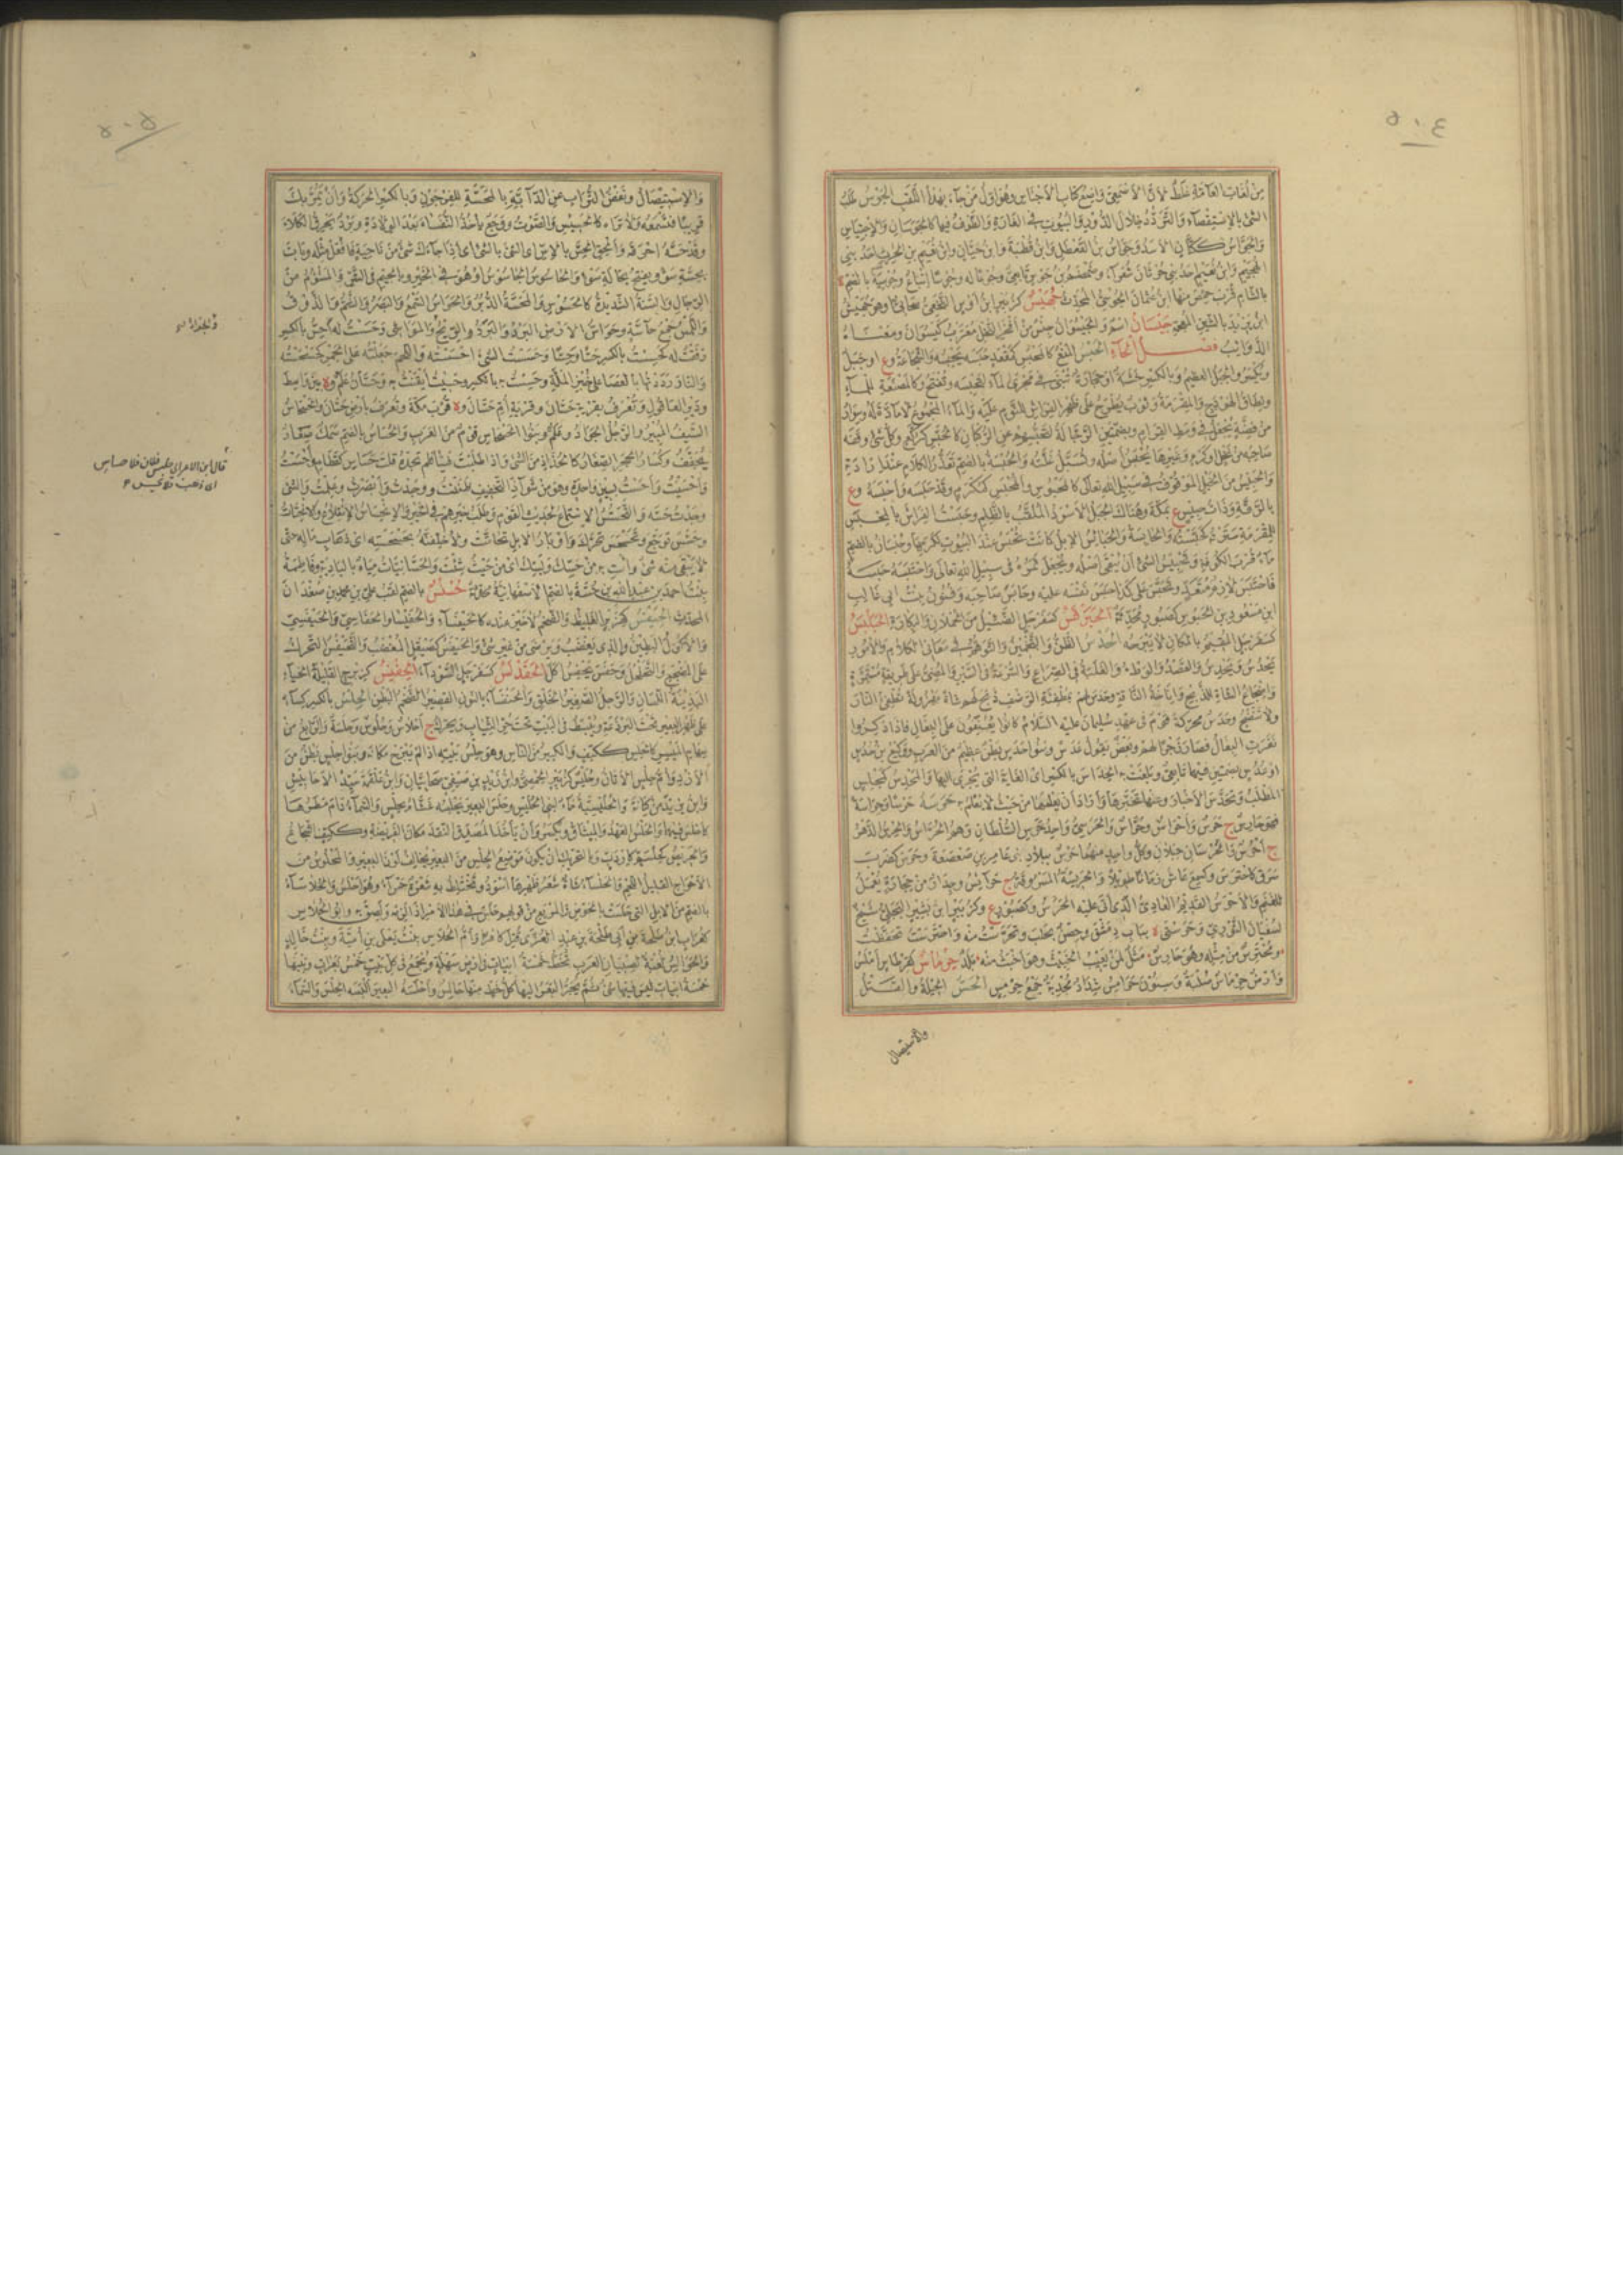 ٥٠٤
من لغات العامة غلط لأن الأصمعي واضع كتاب الأجناس وهو أول من جاء بهذا اللقب الجوس طلب
الشيء بالاستقصاء والتردد خلال الدور والبيوت في الغارة والطوف فيها كالجوسان والاجتياس
والجواس ككتان الأسد وجواس بن القعطل وابن قطبة وابن حيان وابن نعيم بن الحرث أحد بني
الهجيم وابن نعيم أحد بني حرثان شعراء وضمضم بن جوس تابعي وجوعا له وجوسا إتباع وجوسية بالضم ة
بالشام قرب حمص منها ابن عثمان الجوسي المحدث جهيس كزبير ابن أوس النخعي صحابي أو هو جهيش
ابن يزيد بالشين المعجمة جيسان اسم والجيسوان جنس من أفخر النخل معرب كيسوان ومعناه
الذوائب فصل الحاء الحبس المنع كالمحبس كمقعد حبسه يحبسه والشجاعة وع أو جبل
ويكسر والجبل العظيم وبالكسر خشبة أو حجارة تبنى في مجرى الماء لتحبسه ويفتح وكالمصنعة للماء
ونطاق الهودج والمقرمة وثوب يطرح على ظهر الفراش للنوم عليه والماء المجموع لا مادة له وسوار
من فضة يجعل في وسط القرام وبضمتين الرجالة لتحبسهم عن الركبان كالحبس كركع وكل شيء وقفه
صاحبه من نخل أو كرم وغيرها يحبس أصله وتسبل غلته والحبسة بالضم تعذر الكلام عند إرادته
والحبيس من الخيل الموقوف في سبيل الله تعالى كالمحبوس والمحبس كمكرم وقد حبسه وأحبسه وع
بالرقة وذات حبيس ع بمكة وهناك الجبل الأسود الملقب بالظلم وحبست الفراش بالمحبس
للمقرمة سترته كحبسته والحابسة والحبائس الإبل كانت تحبس عند البيوت لكرمها وحبسان بالضم
ماء قرب الكوفة وتحبيس الشيء أن يبقى أصله ويجعل ثمره في سبيل الله تعالى واحتبسه حبسه
فاحتبس لازم متعد وتحبس على كذا حبس نفسه عليه وحابس صاحبه وفنون بنت أبي غالب
ابن مسعود بن الحبوس كصبور محدثة الحبرقس كسفرجل الضئيل من الحملان والبكارة الحبلبس
كسفرجل المقيم بالمكان لا يبرحه الحدس الظن والتخمين والتوهم في معاني الكلام والأمور
يحدس ويحدس والقصد والوطء والغلبة في الصراع والسرعة في السير والمضي على طريقة مستمرة
وإضجاع الشاة للذبح وإناخة الناقة وحدس لهم بمطفئة الرضف ذبح لهم شاة مهزولة تطفئ النار
ولا تنضج وحدس محركة قوم في عهد سليمان عليه السلام كانوا يعنفون على البغال فإذا ذكروا
نفرت البغال فصار زجرا لهم وبعض يقول عدس وبنو حدس بطن عظيم من العرب ووكيع بن حدس
أو عدس بضمتين فيهما تابعي وبلغت به الحداس بالكسر أي الغاية التي يجرى إليها والمحدس كمجلس
المطلب وتحدس الأخبار وعنها تخبرها وأراد أن يعلمها من حيث لا يعلم به حرسه حرسا وحراسة
فهو حارس ج حرس وأحراس وحراس والحرسي واحد حرس السلطان وهو الحراس والحرس الدهر
ج أحرس والحرسان جبلان وكل واحد منهما حرس ببلاد بني عامر بن صعصعة وحرس كضرب
سرق كاحترس وكسمع عاش زمانا طويلا والحريسة المسروقة ج حرائس وجدار من حجارة يعمل
للغنم والأحرس القديم العادي الذي أتى عليه الحرس وكصبور ع وكزبير ابن بشير البجلي شيخ
لسفيان الثوري وحرستى ة بباب دمشق وحصن بحلب وتحرست منه واحترست تحفظت
ومحترس من مثله وهو حارس مثل لمن يعيب الخبيث وهو أخبث منه بلد حرماس كقرطاس أملس
وأرض حرماس صلبة وسنون حرامس شداد مجدبة جمع حرمس الحس الحيلة والقتل
والاستئصال
٥٠٥
والاستئصال ونفض التراب عن الدابة بالمحسة للفرجون وبالكسر الحركة وأن يمر بك
قريبا فتسمعه ولا تراه كالحسيس والصوت ووجع يأخذ النفساء بعد الولادة وبرد يحرق الكلأ
وقد حسه أحرقه وألحق الحس بالإس أي الشيء بالشيء أي إذا جاءك شيء من ناحية فافعل مثله وبات
بحسة سوء ويفتح بحالة سوء والحاسوس الجاسوس أو هو في الخير وبالجيم في الشر والمشؤم من
الرجال والسنة الشديدة كالحسوس والمحسة الدبر والحواس السمع والبصر والشم والذوق
واللمس جمع حاسة وحواس الأرض البرد والبرد والريح والجراد والمواشي وحسست له أحس بالكسر
رققت له كحسست بالكسر حسا وحسا وحسست الشيء أحسسته واللحم جعلته على الجمر كحسحسته
والنار رددتها بالعصا على خبز الملة وحسست به بالكسر وحسيت أيقنت به وحسان علم وة بين واسط
ودير العاقول وتعرف بقرية حسان وقرية أم حسان وة قرب مكة وتعرف بأرض حسان والحسحاس
السيف المبير والرجل الجواد وعلم وبنو الحسحاس قوم من العرب والحساس بالضم سمك صغار
يجفف وكسار الحجر الصغار كالجذاذ من الشيء وإذا طلبت شيئا فلم تجده قلت حساس كقطام وأحسست
وأحسيت وأحست بسين واحدة وهو من شواذ التخفيف ظننت ووجدت وأبصرت وعلمت والشيء
وجدت حسه والتحسس الاستماع لحديث القوم وطلب خبرهم في الخير والانحساس الانقلاع والتحات
وحسس توجع وتحسحس تحرك وأوبار الإبل تحاتت ولأخلفنه بحسحسه أي ذهاب ماله حتى
لا يبقى منه شيء وائت به من حسك وبسك أي من حيث شئت والحسانيات مياه بالبادية وفاطمة
بنت أحمد بن عبد الله بن حسة بالضم الأصفهانية محدثة حسنس بالضم لقب علي بن محمد بن صغدان
المحدث الحيفس كهزبر الغليظ والضخم لا خير عنده كالحيفساء والحفيسأ والحفاسي والحيفسي
والأكول البطين والذي يغضب ويرضى من غير شيء والحيفس كصيقل المغضب والتحيفس التحرك
على المضجع والتحلحل وحفس يحفس أكل الحفدلس كسفرجل السوداء الحفنس كزبرج القليلة الحياء
البذيئة اللسان والرجل الصغير الخلق والحفنسأ بالنون القصير الضخم البطن الحلس بالكسر كساء
على ظهر البعير تحت البرذعة ويبسط في البيت تحت حر الثياب ويحرك ج أحلاس وحلوس وحلسة والرابع من
سهام الميسر كالحلس ككتف والكبير من الناس وهو حلس بيته إذا لم يبرح مكانه وبنو حلس بطن من
الأزد وأم حلس الأتان وحليس كزبير الحمصي وابن زيد بن صيفي صحابيان وابن علقمة سيد الأحابيش
وابن يزيد من كنانة والحليسية ماء لبني الحليس وحلس البعير يحلسه غشاه بحلس والسماء دام مطرها
كأحلس فيهما والحلس العهد والميثاق ويكسر وأن يأخذ المصدق النقد مكان الفريضة وككتف الشجاع
والحريص كحلسم كإردب وبالتحريك أن يكون موضع الحلس من البعير يخالف لون البعير والمحلوس من
الأحراح القليل اللحم والحلساء شاة شعر ظهرها أسود وتختلط به شعرة حمراء وهو أحلس والحلاساء
بالضم من الإبل التي حلست بالحوض والمرتع من قولهم حلس في هذا الأمر إذا لزمه ولصق به وأبو الحلاس
كغراب ابن طلحة بن أبي طلحة بن عبد العزى قتل كافرا وأم الحلاس بنت يعلى بن أمية وبنت خالد
والحوالس لعبة لصبيان العرب تخط خمسة أبيات في أرض سهلة ويجمع في كل بيت خمس بعرات وبينها
خمسة أبيات ليس فيها شيء ثم يجر البعر إليها كل خط منها حالس وأحلست البعير ألبسته الحلس والسماء
والجراد صح
قال ابن الأعرابي